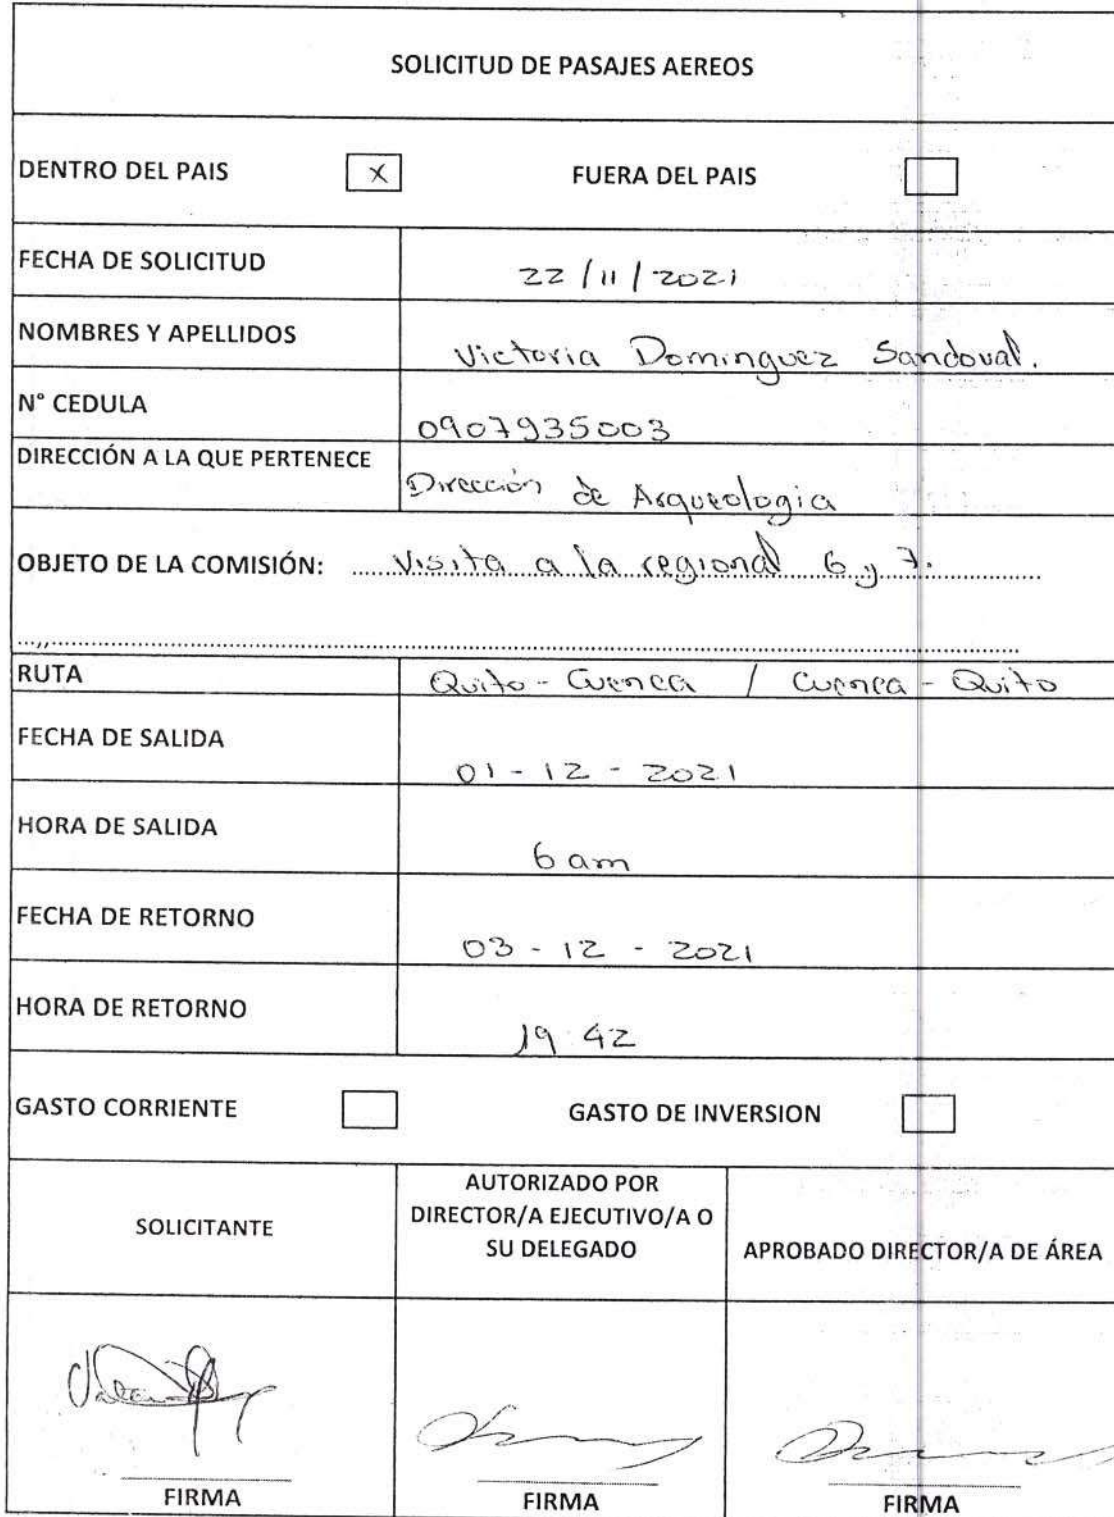 SOLICITUD DE PASAJES AEREOS
DENTRO DEL PAIS X FUERA DEL PAIS
FECHA DE SOLICITUD 22/11/2021
NOMBRES Y APELLIDOS Victoria Dominguez Sandoval.
N° CEDULA 0907935003
DIRECCIÓN A LA QUE PERTENECE Dirección de Arqueologia
OBJETO DE LA COMISIÓN: Visita a la regional 6 y 7.
RUTA Quito - Cuenca / Cuenca - Quito
FECHA DE SALIDA 01 - 12 - 2021
HORA DE SALIDA 6 am
FECHA DE RETORNO 03 - 12 - 2021
HORA DE RETORNO 19 42
GASTO CORRIENTE GASTO DE INVERSION
SOLICITANTE
AUTORIZADO POR
DIRECTOR/A EJECUTIVO/A O
SU DELEGADO
APROBADO DIRECTOR/A DE ÁREA
FIRMA FIRMA FIRMA